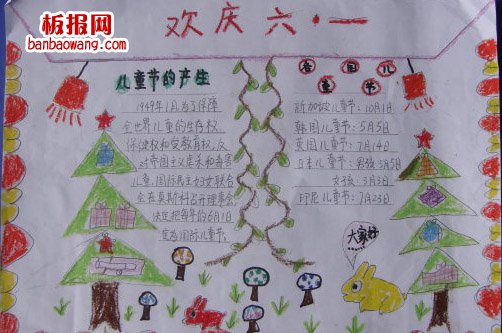 板报网
banbaowang.com
欢庆六·一
儿童节的产生
1949年1月为了保障
全世界儿童的生存权
保健权和受教育权,反
对帝国主义虐杀和毒害
儿童,国际民主妇女联合
会在莫斯科召开理事会
决定把每年的6月1日
定为国际儿童节。
各国儿童节
新加坡儿童节:10月1日
韩国儿童节:5月5日
英国儿童节:7月14日
日本儿童节:男孩:5月5日
女孩:3月3日
印尼儿童节:7月23日
大家好